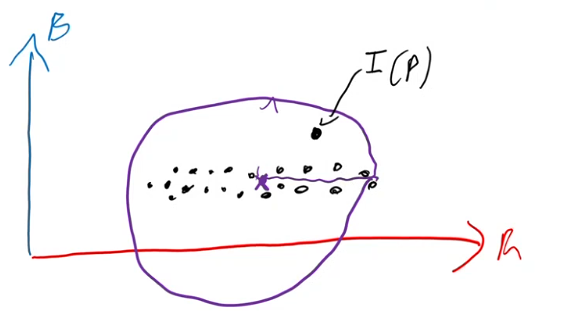 B
I(P)
R